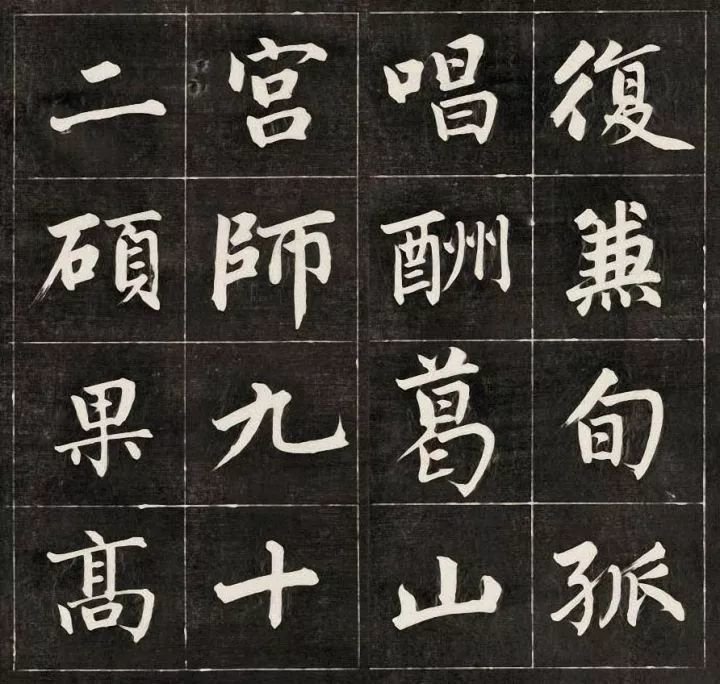 復兼旬孤
唱酬葛山
宮師九十
二碩果高